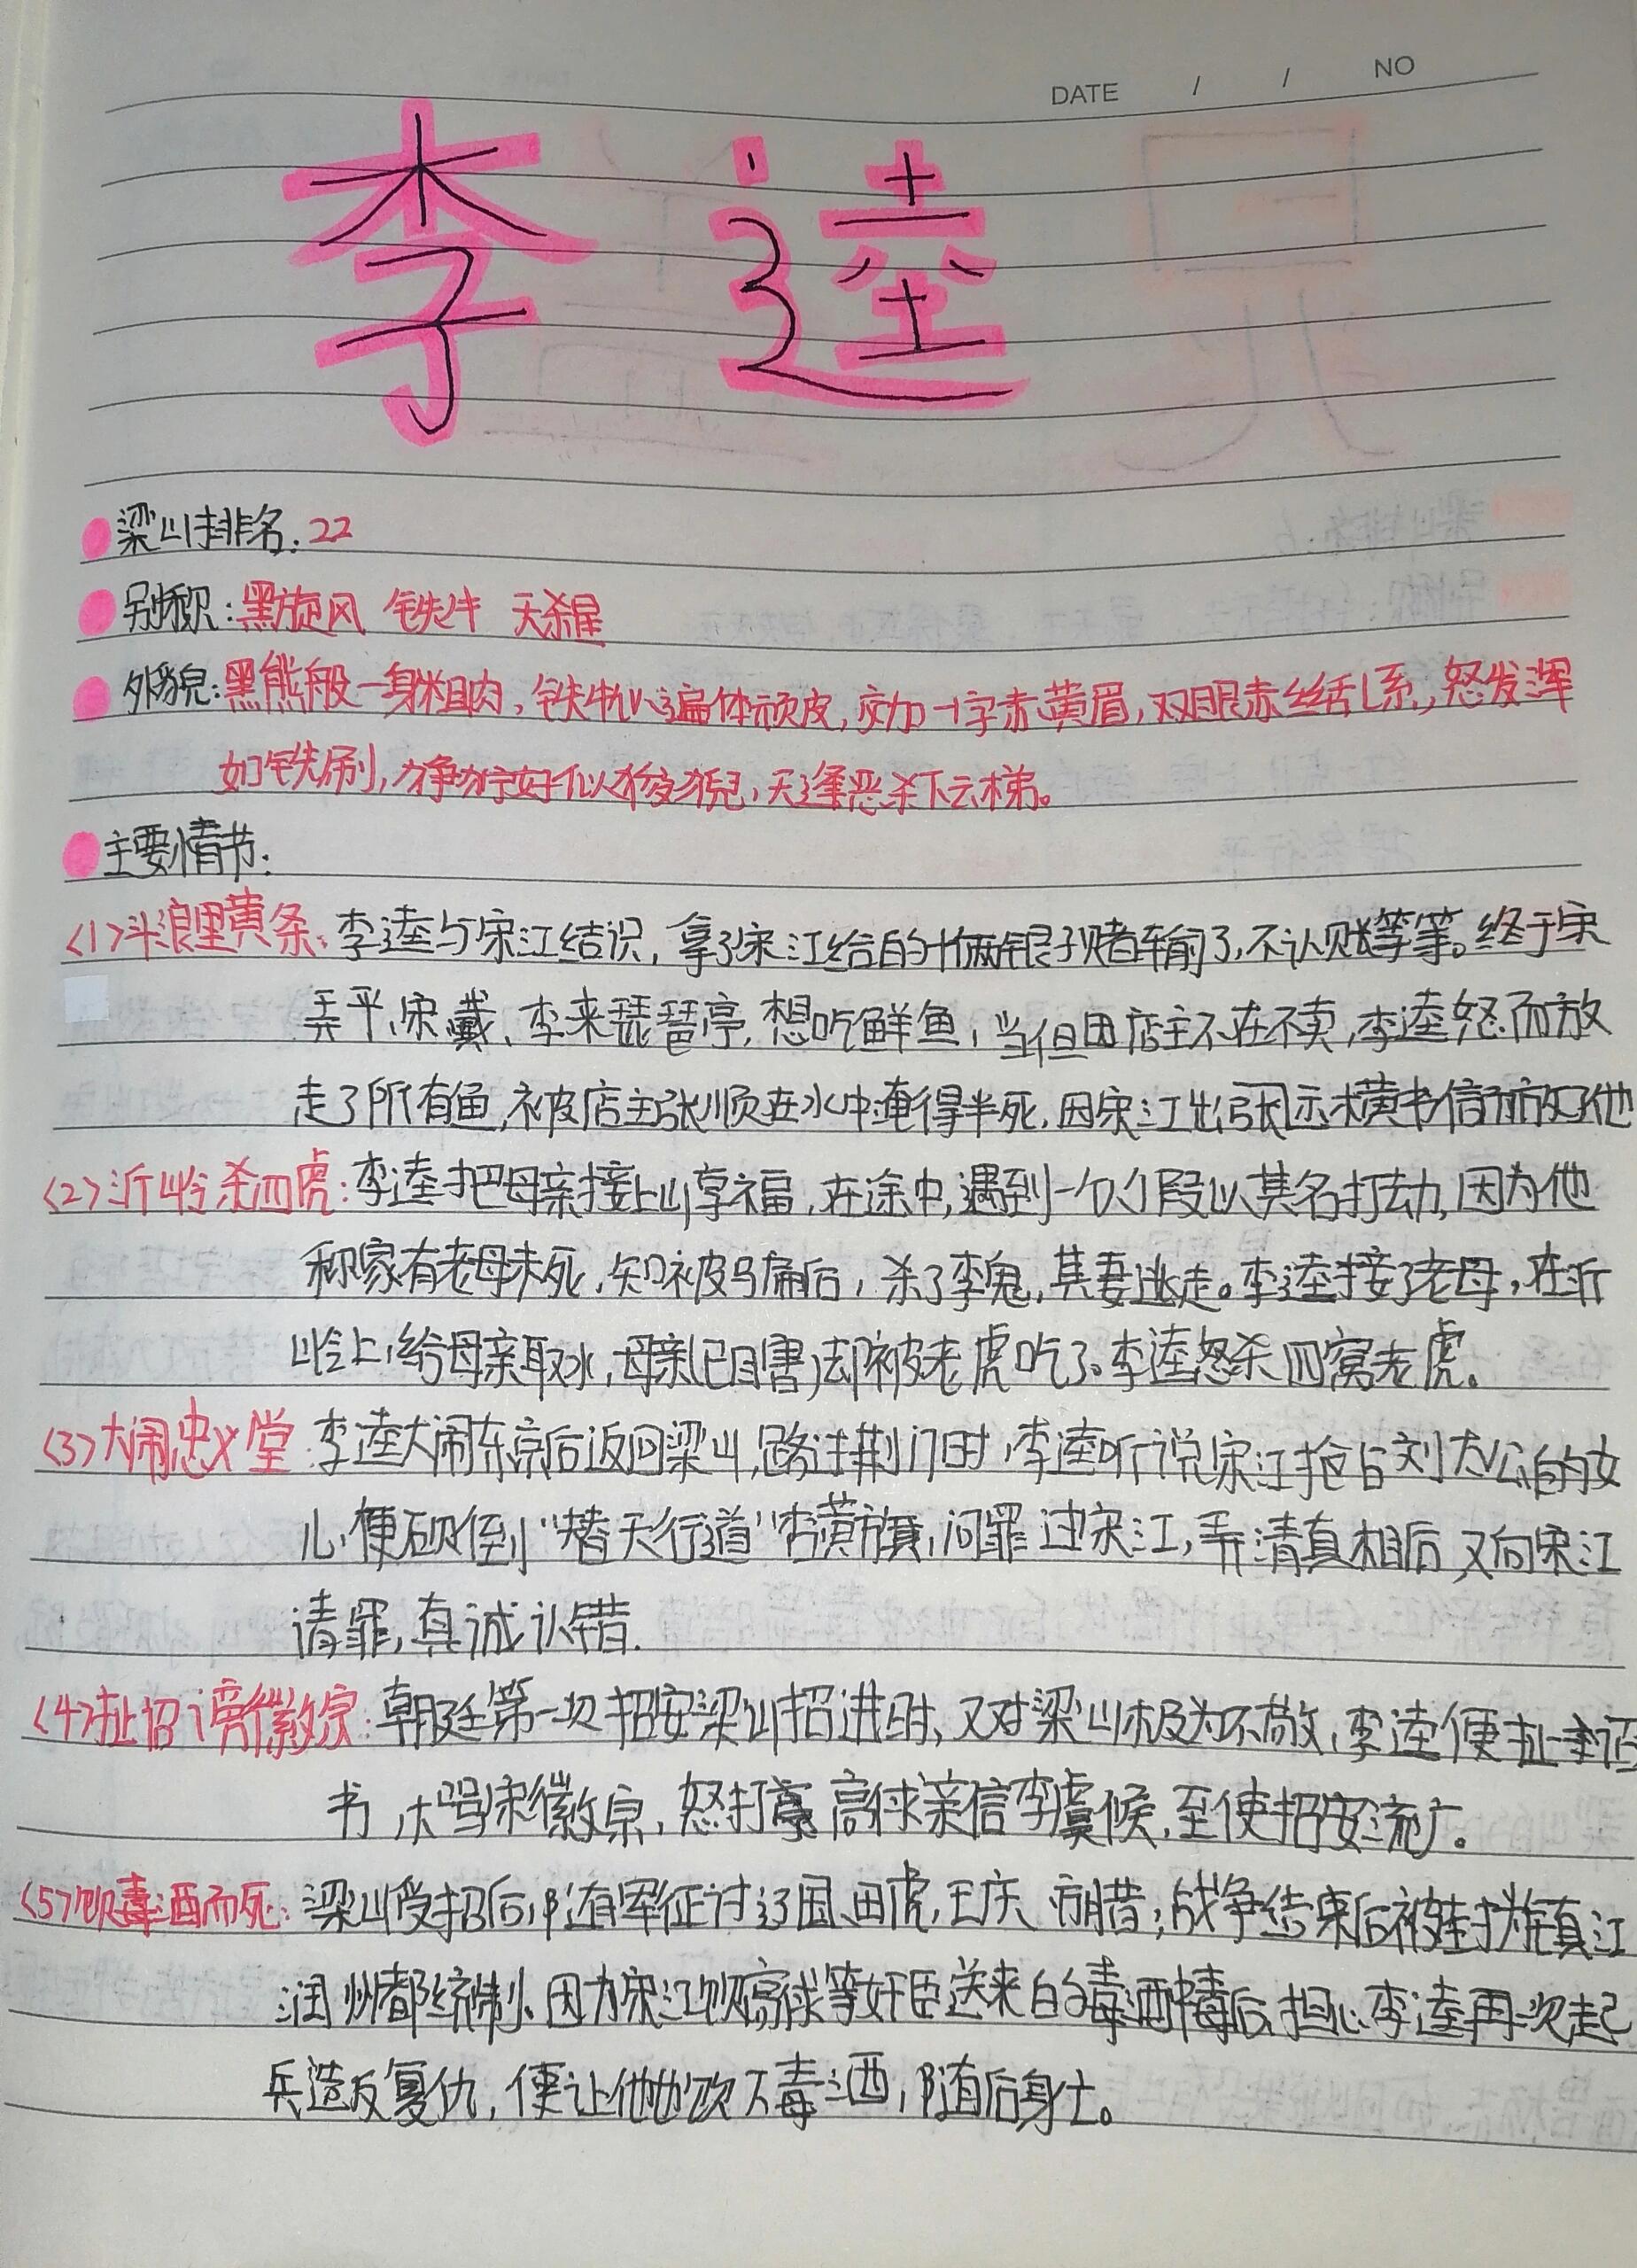 DATE / / NO
李逵
梁山排名:22
别称:黑旋风 铁牛 天杀星
外貌:黑熊般一身粗肉,铁牛似遍体顽皮,交加一字赤黄眉,双眼赤丝乱系,怒发浑
如铁刷,狰狞好似狻猊,天蓬恶杀下云梯。
主要情节:
(1)斗浪里黄条:李逵与宋江结识,拿了宋江给的十俩银子赌车前了,不认账等等。终于宋
弄平,宋、戴、李来琵琶亭,想吃鲜鱼,当但因店主不在不卖,李逵怒而放
走了所有鱼,被店主张顺在水中淹得半死,因宋江出示张横书信而放了他
(2)沂岭杀四虎:李逵把母亲接上山享福,在途中,遇到一个人假以其名打劫,因为他
称家有老母未死,知被骗后,杀了李鬼,其妻逃走。李逵接了老母,在沂
岭上,给母亲取水,母亲(已目害)却被老虎吃了。李逵怒杀四窝老虎。
(3)大闹忠义堂:李逵大闹东京后返回梁山,路过荆门时,李逵听说宋江抢占刘太公的女
儿,便砍倒“替天行道”杏黄旗,问罪过宋江,弄清真相后,又向宋江
请罪,真诚认错.
(4)扯招谤徽宗:朝廷第一次招安梁山招进时,又对梁山极为不敬,李逵便扯诏
书,大骂宋徽宗,怒打高俅亲信李虞候,至使招安流产。
(5)饮毒酒而死:梁山受招后,随军征讨辽国、田虎,王庆 方腊;战争结束后被封为镇江
润州都统制、因为宋江饮高俅等奸臣送来的毒酒中毒后,担心李逵再次起
兵造反复仇,便让他也饮下毒酒,随后身亡。